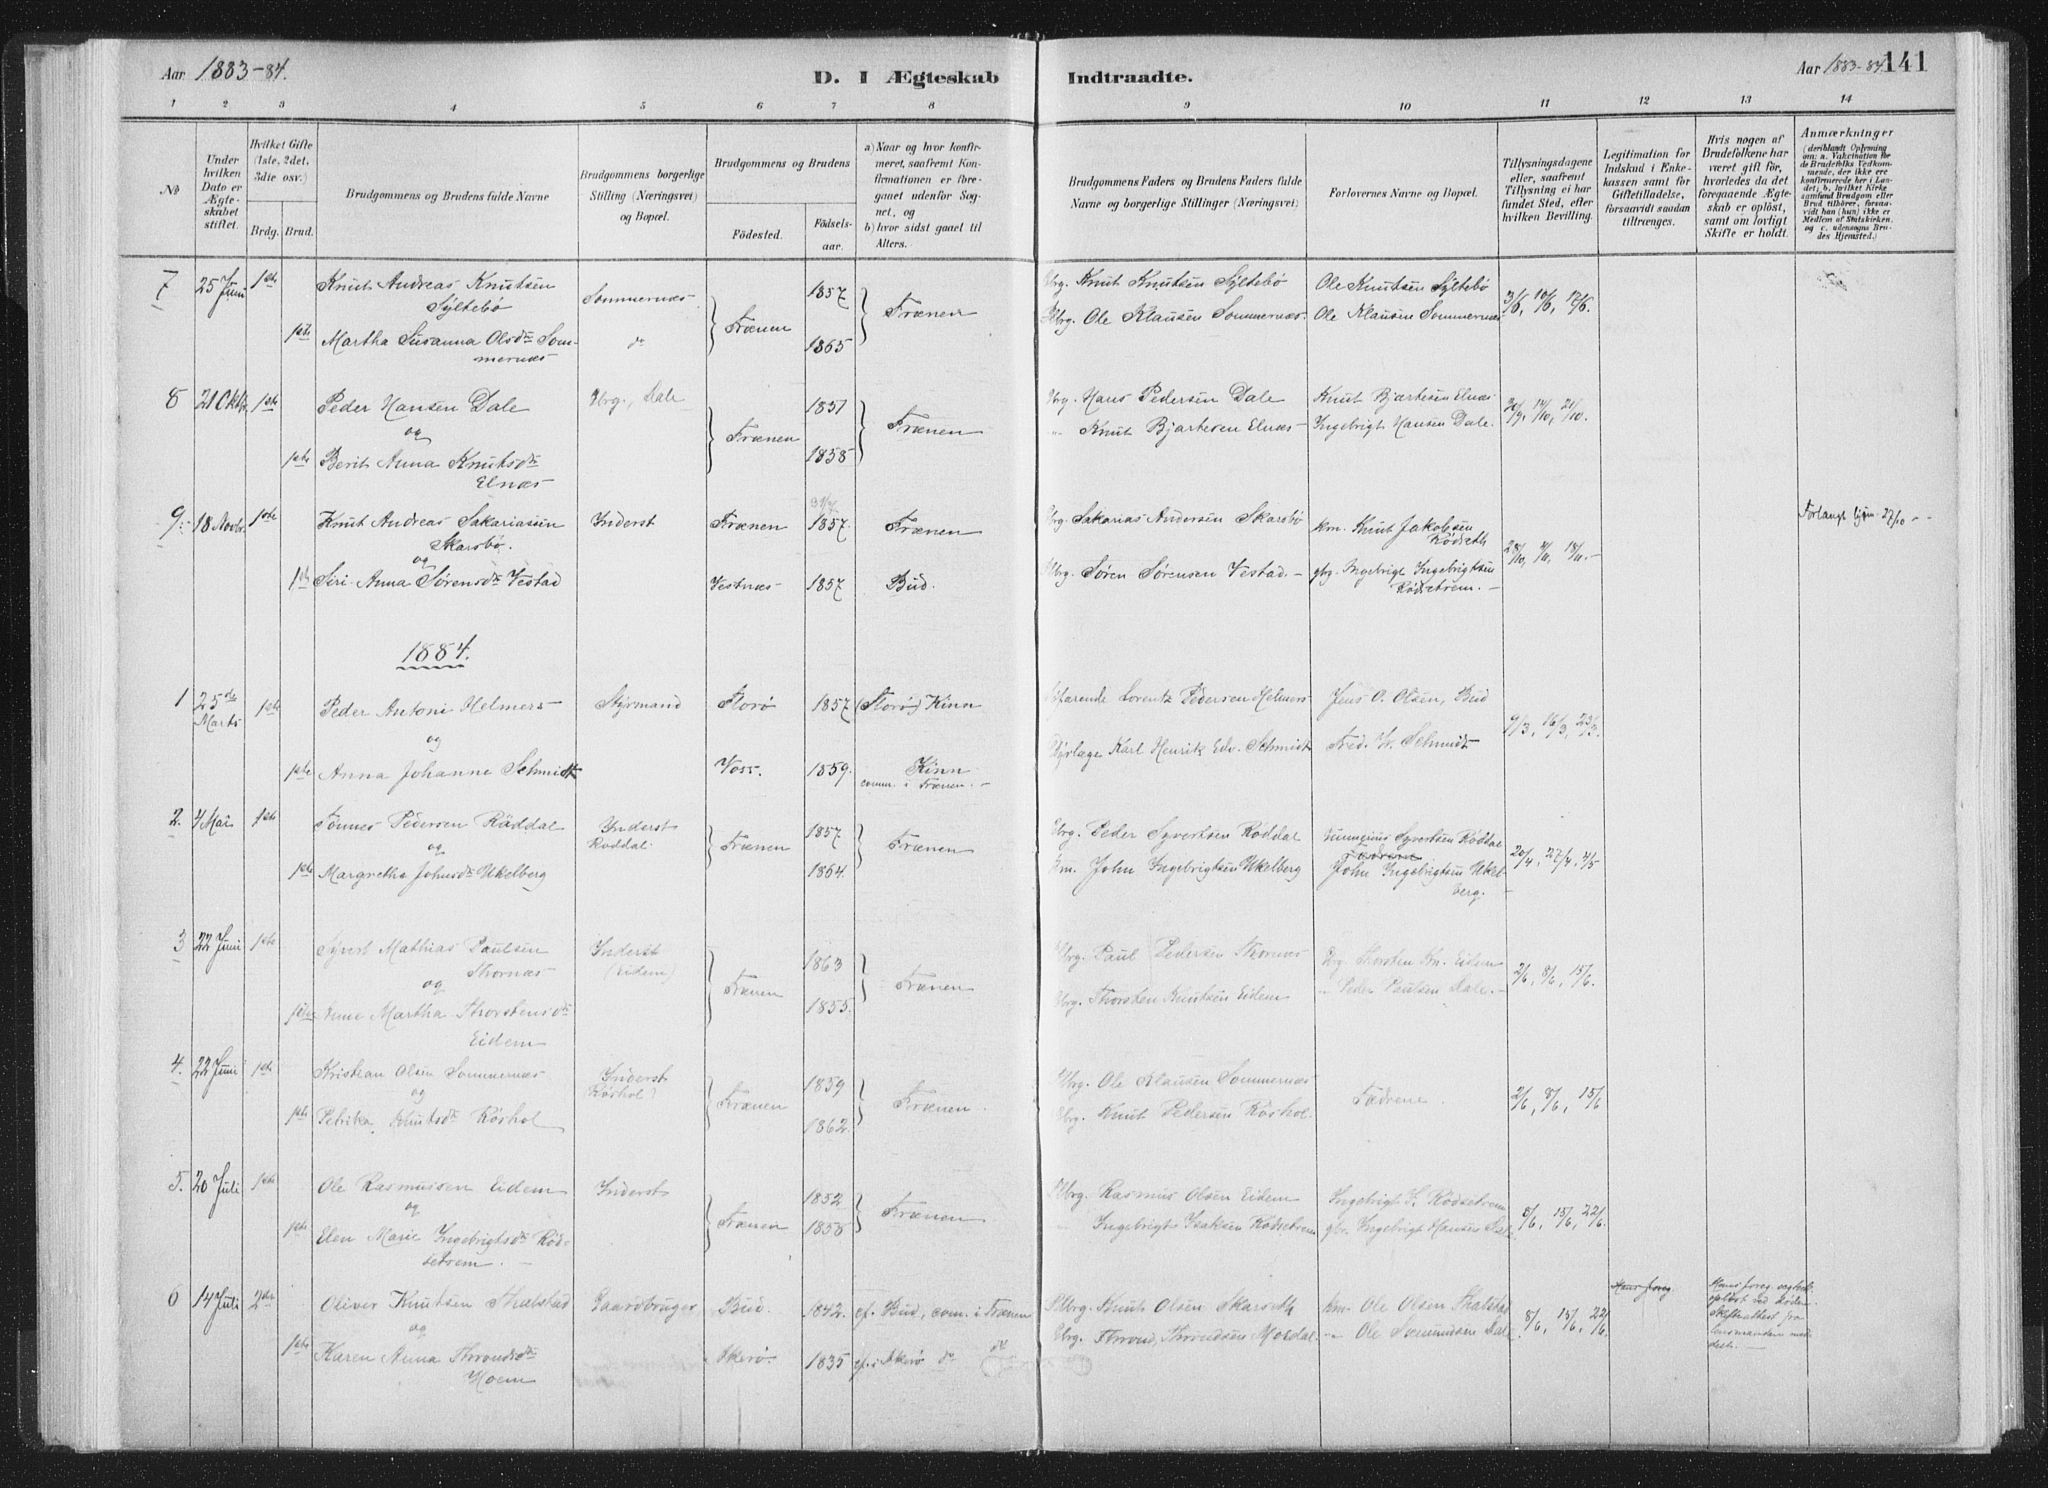 Aar 1883-84.
D. I Ægteskab
Indtraadte.
Aar 1883-84 141
1 2 3 4 5 6 7 8 9 10 11 12 13 14
No
Under hvilken Dato er Ægteskabet stiftet.
Hvilket Gifte (1ste, 2det, 3die osv.)
Brdg. Brud.
Brudgommens og Brudens fulde Navne
Brudgommens borgerlige Stilling (Næringsvei) og Bopæl.
Brudgommens og Brudens
Fødested. Fødselsaar.
a) Naar og hvor konfirmeret, saafremt Konfirmationen er foregaaet udenfor Sognet, og
b) hvor sidst gaaet til Alters.
Brudgommens Faders og Brudens Faders fulde Navne og borgerlige Stillinger (Næringsvei)
Forlovernes Navne og Bopæl.
Tillysningsdagene eller, saafremt Tillysning ei har fundet Sted, efter hvilken Bevilling.
Legitimation for Indskud i Enkekassen samt for Giftetilladelse, forsaavidt saadan tiltrænges.
Hvis nogen af Brudefolkene har været gift før, hvorledes da det foregaaende Ægteskab er opløst, samt om lovligt Skifte er holdt.
Anmærkninger (deriblandt Oplysning om: a. Vakcination for de Brudefolks Vedkommende, der ikke ere konfirmerede her i Landet; b. hvilket Kirkesamfund Brudgom eller Brud tilhører, forsaavidt han (hun) ikke er Medlem af Statskirken, og c. udensogns Brudes Hjemsted.)
7 25 Juni 1ste Knut Andreas Knutsen 1857 Gbrg. Knut Knutsen Syltebø Ole Knutsen Syltebø
Syltebø Sommernæs Frænen Frænen 3/6, 10/6, 17/6.
1ste Martha Susanna Olsdtr Som- do 1865 Gbrg. Ole Klausen Sommernæs. Ole Klausen Sommernæs
mernæs
8 21 Oktbr. 1ste Peder Hansen Dale Gbrg, Dale 1857 Gbrg. Hans Pedersen Dale Knut Bjartesen Elnæs
og Frænen Frænen " Knut Bjartesen Elnæs Ingebrigt Hansen Dale. 14/10, 21/10.
1ste Berit Anna Knutsdtr 1858
Elnæs
9. 18 Novbr. 1ste Knut Andreas Sakariassen Inderst Frænen 1857. Frænen Gbrg. Sakarias Andersen Skarsbø km. Knut Jakobsen
Skarsbø. Rødseth 28/10, 4/11, 18/11.
og
1ste Siri Anna Sørensdtr Vestad Vestnæs 1857 Bud. Gbrg. Søren Sørensen Vestad gbrg. Ingebrigt Ingebrigtsen
Rødsetrem.
1884.
1 25de Marts 1ste Peder Antoni Helmers Styrmand Florø 1857 (Florø) Kinn Søfarende Lorentz Pedersen Helmers Jens O. Olsen, Bud
og 9/3, 16/3, 23/3.
1ste Anna Johanne Schmidt Voss. 1859. Kinn Dyrlæge Karl Henrik Edv. Schmidt Fred. Schmidt
comm. i Frænen.
2. 4 Mai 1ste Tønnes Pedersen Røddal Inderst 1857 Gbrg. Peder Syvertsen Røddal Syvertsen Røddal
og Røddal. Frænen Frænen 20/4, 27/4, 4/5
1ste Margretha Johnsdtr Ukelberg 1864. km. John Ingebrigtsen Ukelberg John Ingebrigtsen Ukel-
berg.
3 22 Juni 1ste Syvert Mathias Paulsen Inderst 1863 Gbrg. Paul Pedersen Thornæs Gbrg. Thorsten Kn. Eidem
Thornæs (Eidem) Frænen Frænen " Peder Paulsen Dale. 2/6, 8/6, 15/6.
og
1ste Martha Thorstensdtr 1855. Gbrg. Thorsten Knutsen Eidem
Eidem
4. 22 Juni 1ste Kristian Olsen Sommernæs Inderst 1859 Gbrg. Ole Klausen Sommernæs
og Røshol) Frænen Frænen. Fædrene. 2/6, 8/6, 15/6
1ste Petrika Knutsdtr Røshol 1862. Gbrg. Knut Pedersen Røshol.
5. 20 Juli 1ste Ole Rasmussen Eidem Inderst 1852 Gbrg. Rasmus Olsen Eidem Ingebrigt I. Rødsetrem
og Frænen Frænen 8/6, 15/6, 22/6.
1ste Elen Marie Ingebrigtsdtr Rød- 1858 " Ingebrigt Isaksen Rødsetrem gbr. Ingebrigt Hansen
setrem.
6 14 Juli 2de Oliver Knutsen Thalstad Gaardbruger Bud. 1842. cf. Bud, com. i Frænen Gbrg. Knut Olsen Skarseth km. Ole Olsen Thalstad 8/6, 15/6, 22/6. Hans foreg.
og
1ste Karen Anna Throndsdtr Akerø. 1835 cf. i Akerø do Gbrg. Thrond Throndsen Mordal " Ole
Hoem